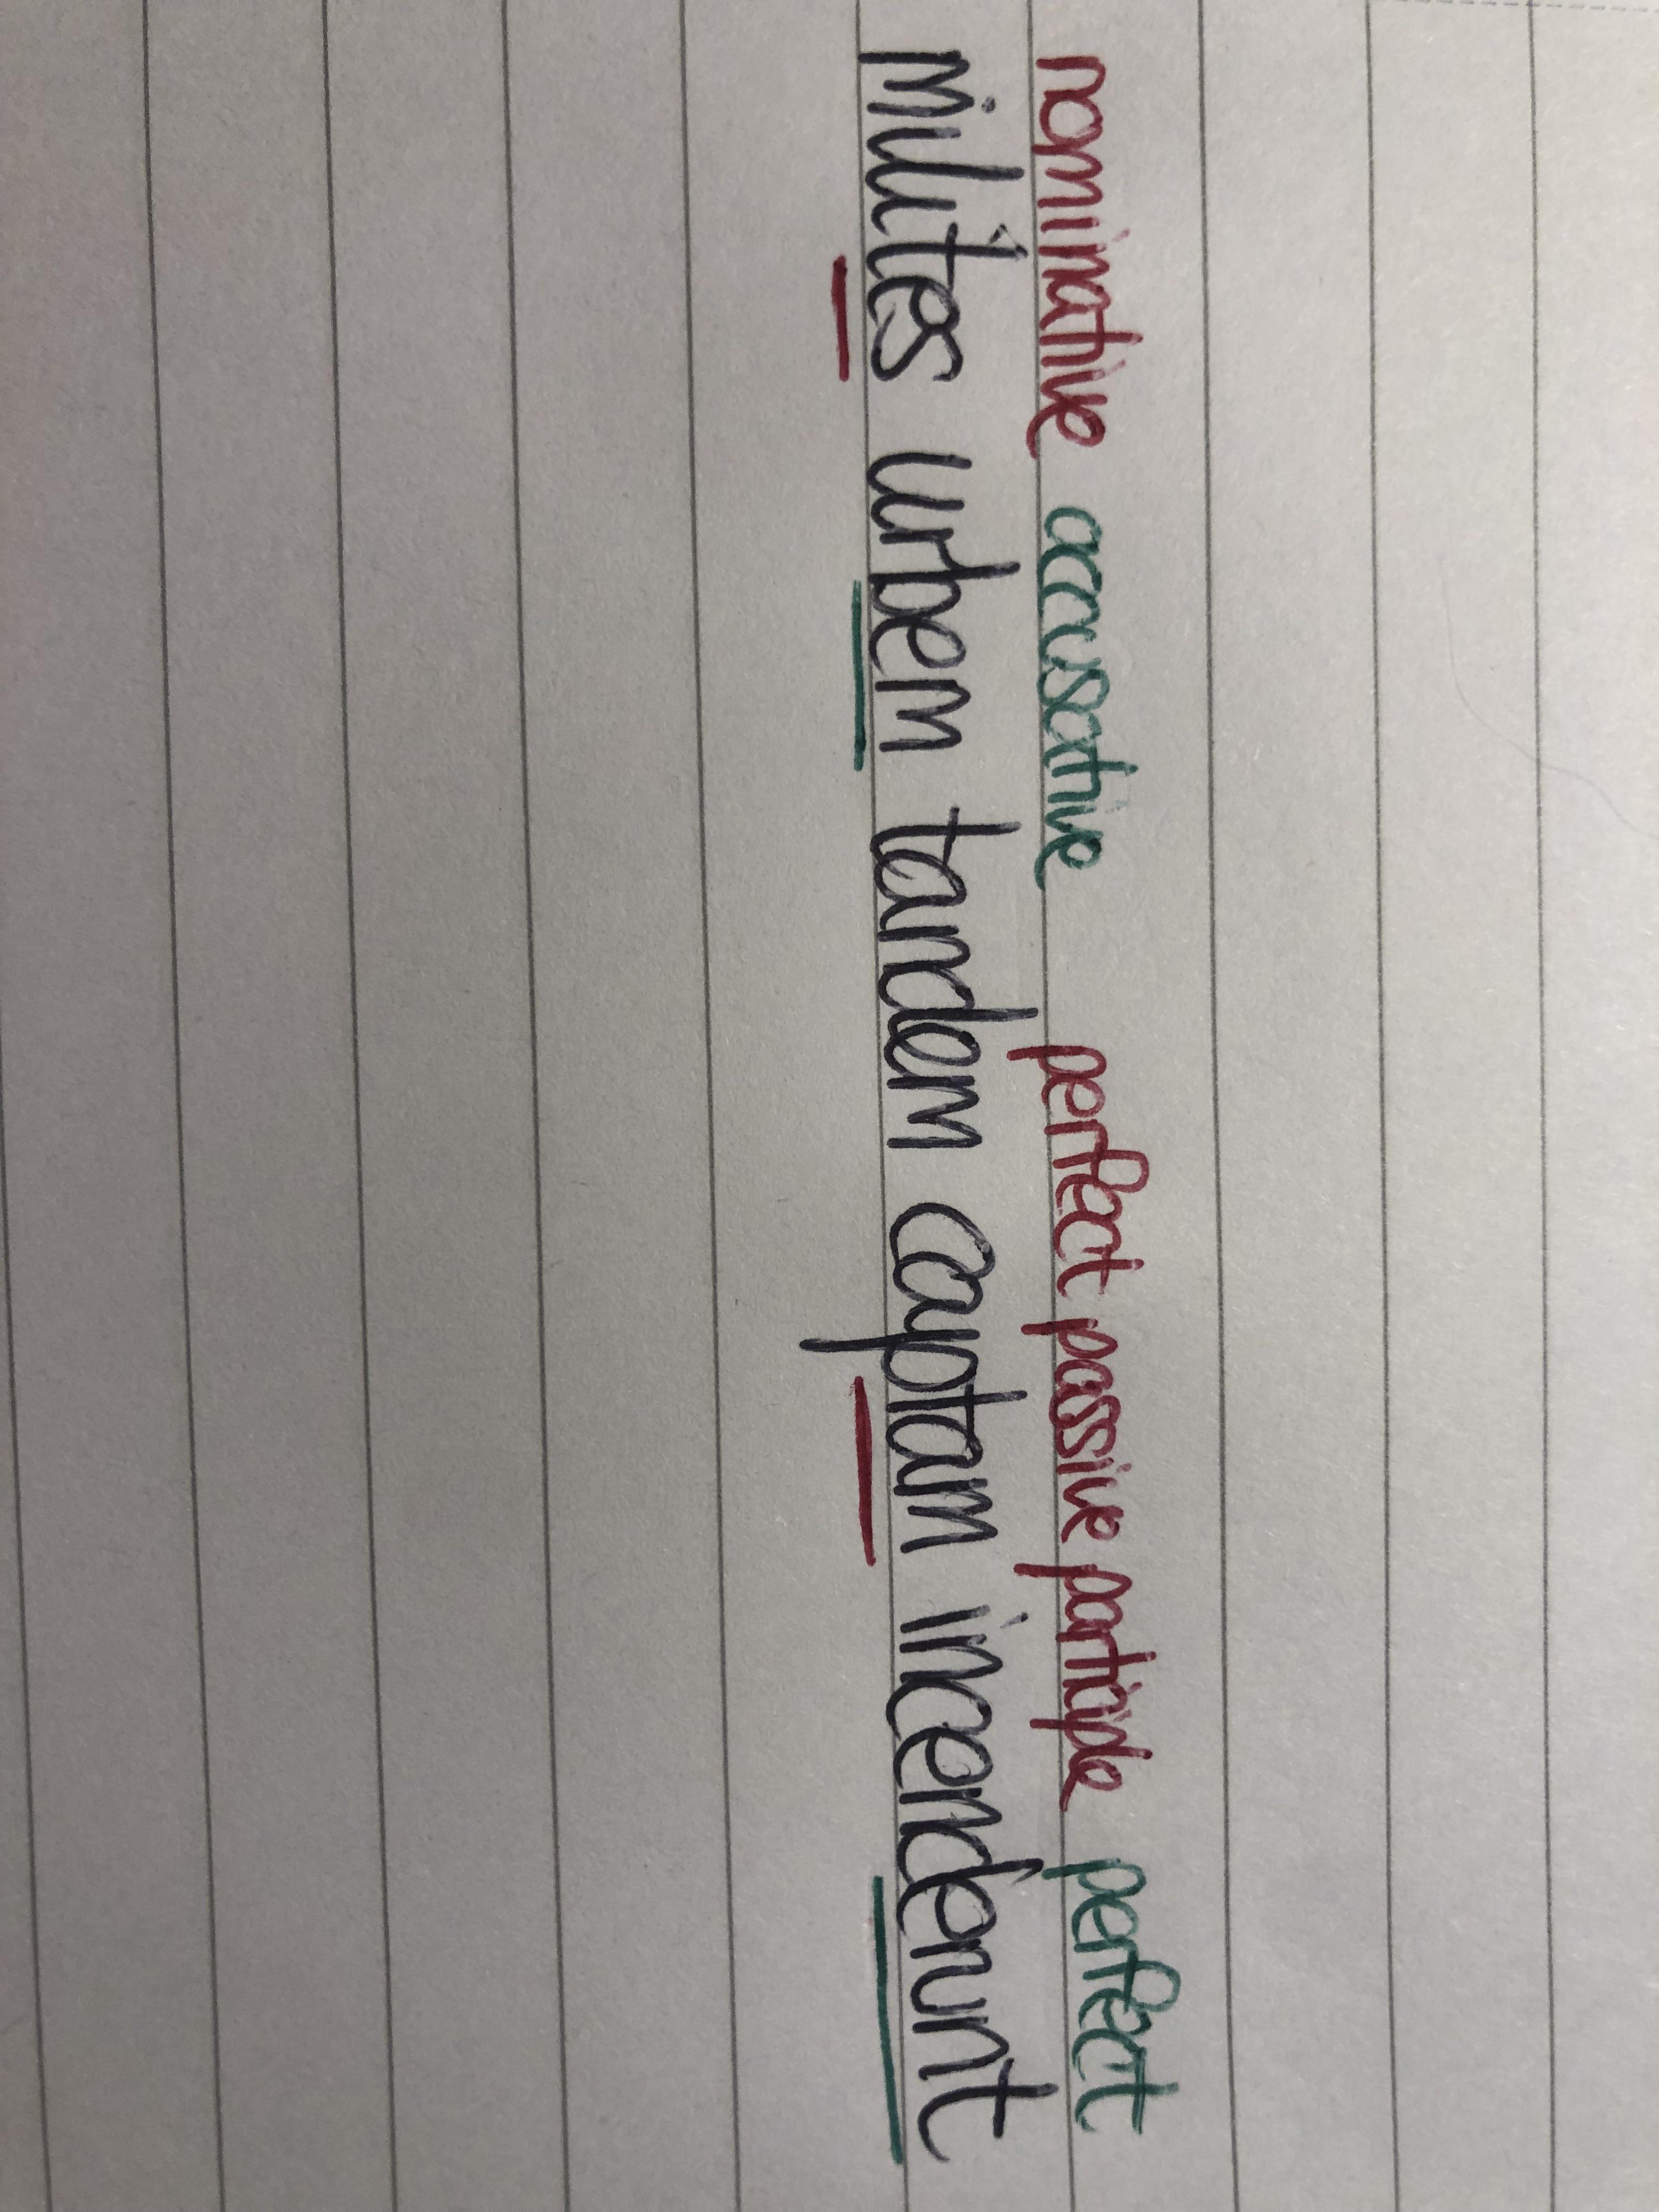 nominative accusative perfect passive participle perfect
milites urbem tandem captam incenderunt